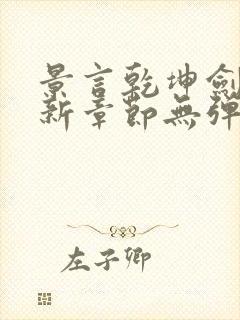 景言乾坤劍
新章節無彈
左子卿